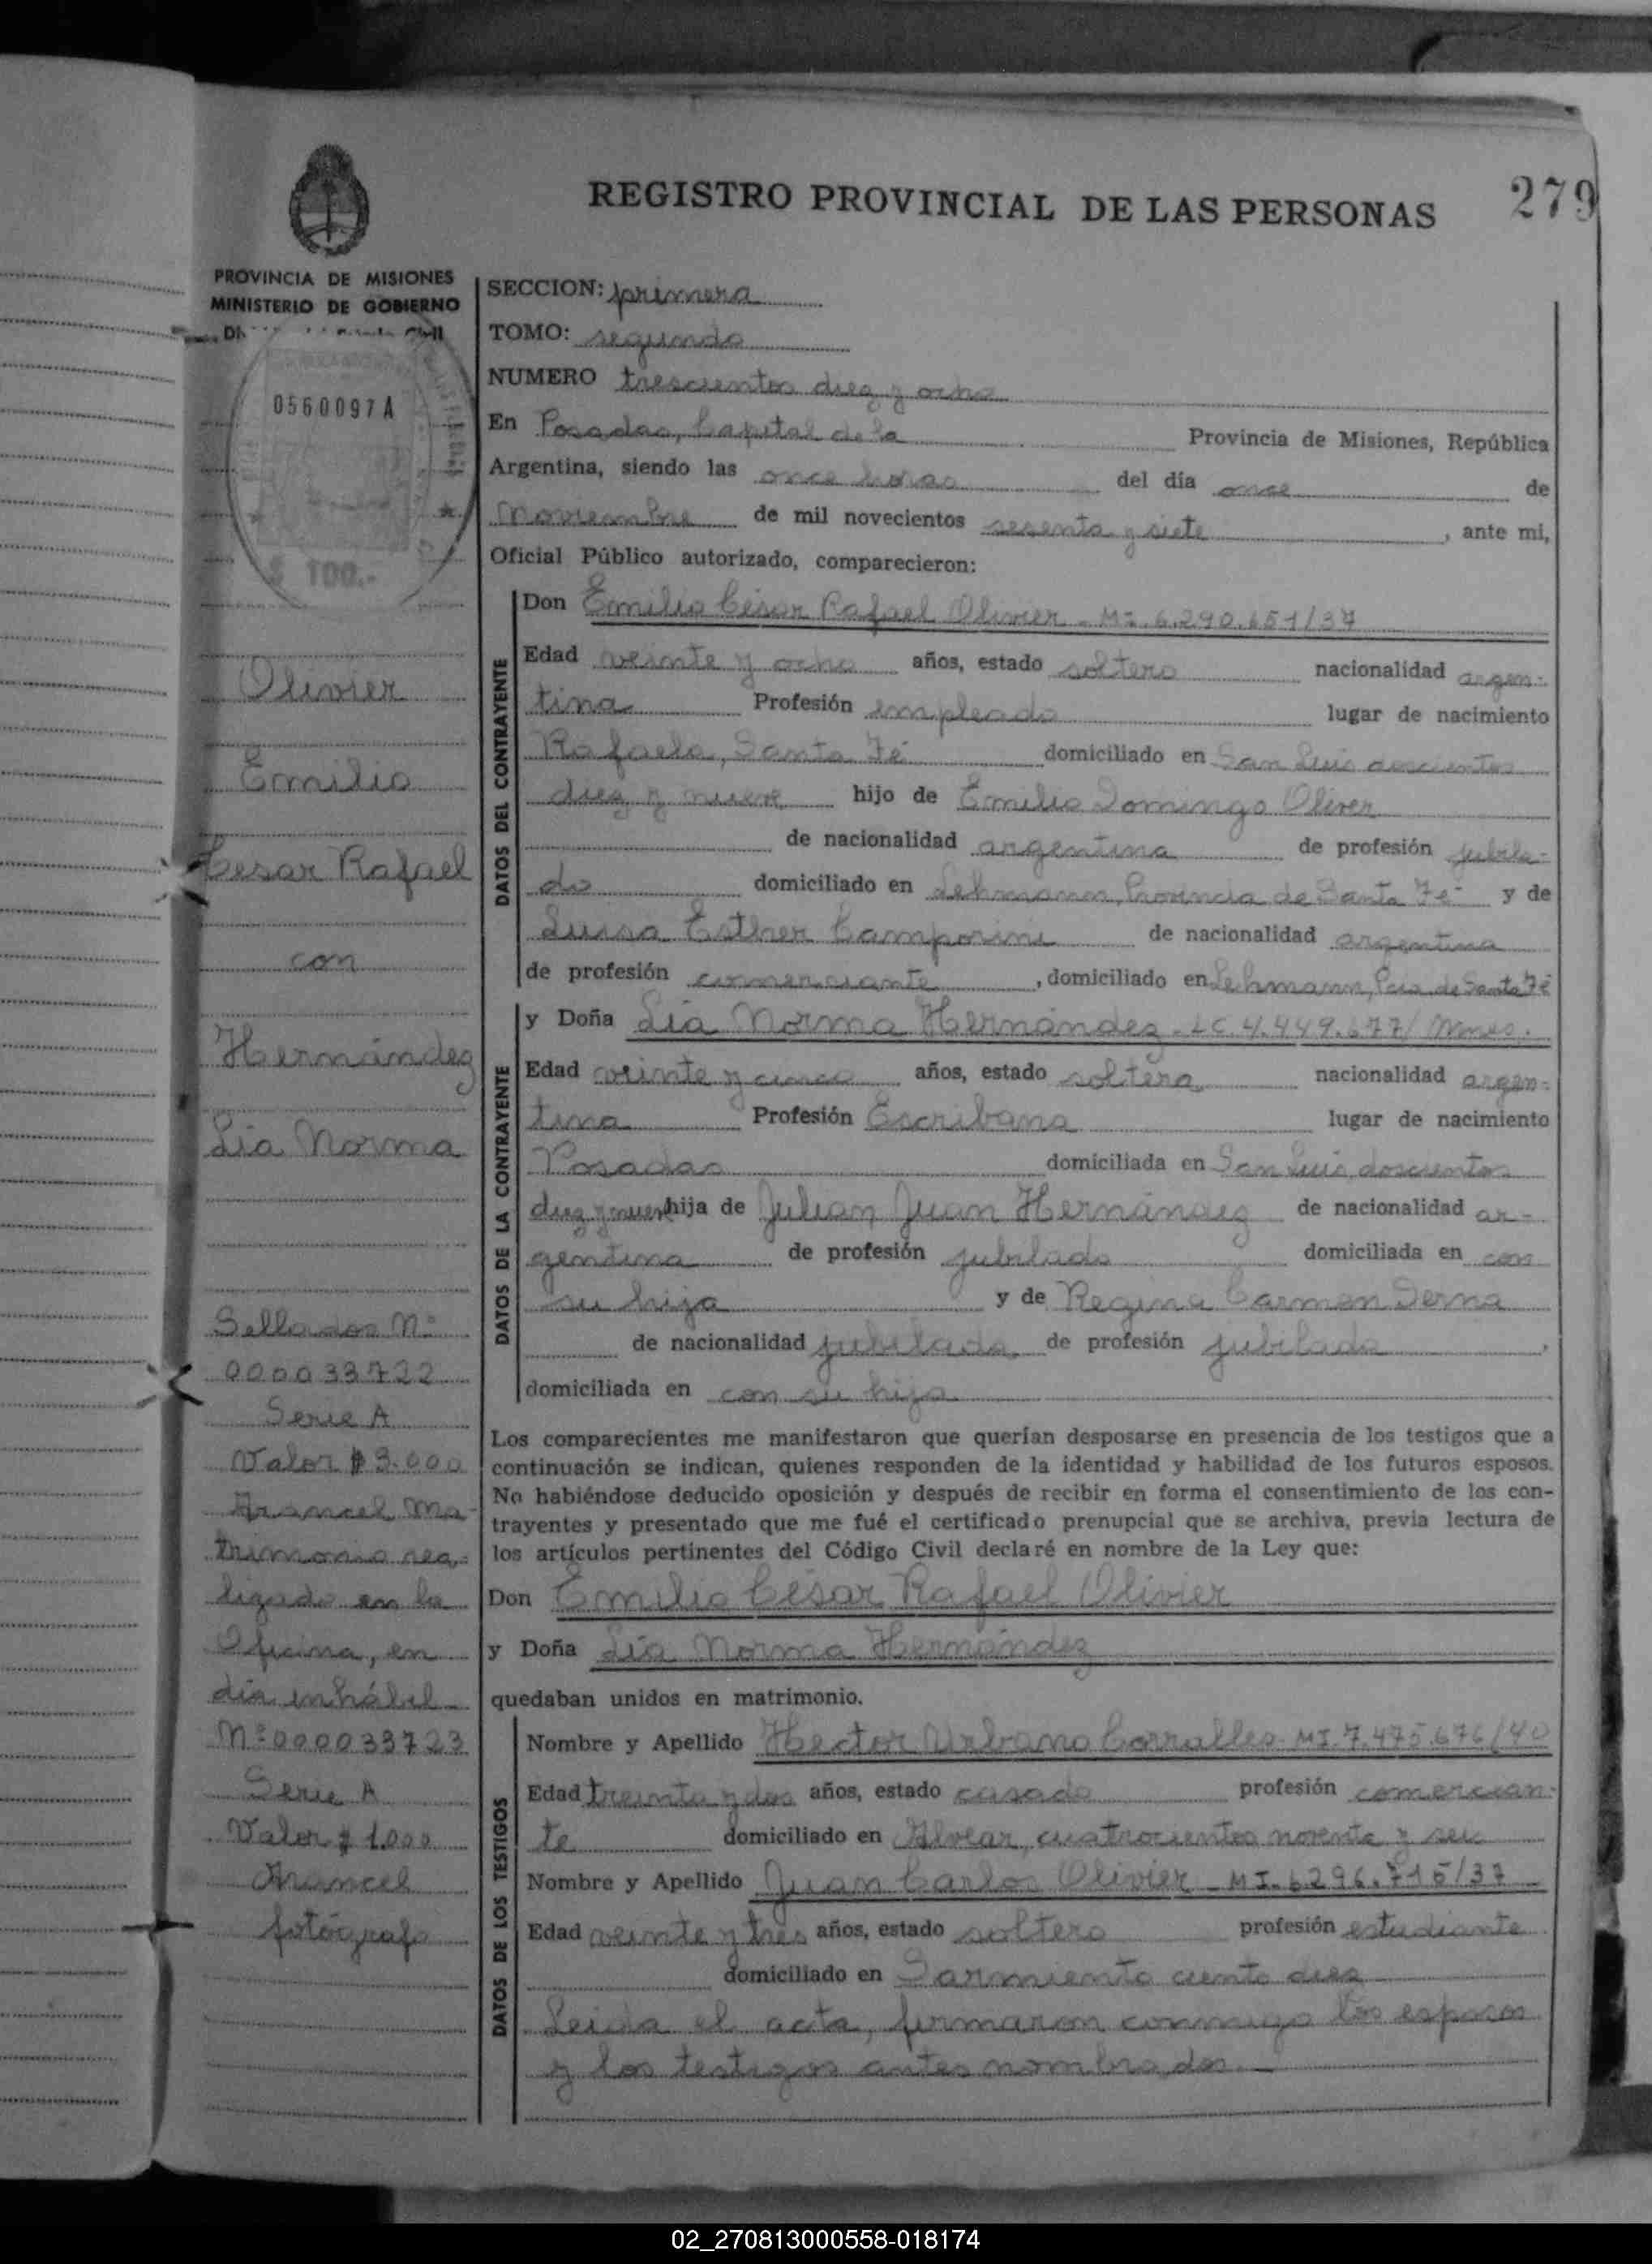 REGISTRO PROVINCIAL DE LAS PERSONAS
279
PROVINCIA DE MISIONES
MINISTERIO DE GOBIERNO
0560097 A
$ 100.-
Olivier
Emilio
Cesar Rafael
con
Hernández
Lia Norma
Sellados Nº
000033722
Serie A
Valor $ 3.000
Arancel Ma-
trimonio rea-
lizado en la
Oficina, en
dia inhábil
Nº 000033723
Serie A
Valor $ 1.000
Arancel
fotógrafo
SECCION: primera
TOMO: segundo
NUMERO trescientos diez y ocho
En Posadas, Capital de la Provincia de Misiones, República
Argentina, siendo las once horas del día once de
Noviembre de mil novecientos sesenta y siete, ante mi,
Oficial Público autorizado, comparecieron:
DATOS DEL CONTRAYENTE
Don Emilio César Rafael Olivier - MI. 6.290.651/37
Edad veinte y ocho años, estado soltero nacionalidad argen-
tina Profesión empleado lugar de nacimiento
Rafaela, Santa Fé domiciliado en San Luis doscientos
diez y nueve hijo de Emilio Domingo Oliver
de nacionalidad argentina de profesión jubila-
do domiciliado en Lehmann, Provincia de Santa Fé y de
Luisa Esther Camporini de nacionalidad argentina
de profesión comerciante, domiciliado en Lehmann, Pcia de Santa Fé
DATOS DE LA CONTRAYENTE
y Doña Lia Norma Hernández - LC 4.449.677/ Mnes.
Edad veinte y cinco años, estado soltera nacionalidad argen-
tina Profesión Escribana lugar de nacimiento
Posadas domiciliada en San Luis, doscientos
diez y nueve hija de Julian Juan Hernández de nacionalidad ar-
gentina de profesión jubilado domiciliada en con
su hija y de Regina Carmen Serna
de nacionalidad jubilada, de profesión jubilada,
domiciliada en con su hija
Los comparecientes me manifestaron que querían desposarse en presencia de los testigos que a
continuación se indican, quienes responden de la identidad y habilidad de los futuros esposos.
No habiéndose deducido oposición y después de recibir en forma el consentimiento de los con-
trayentes y presentado que me fué el certificado prenupcial que se archiva, previa lectura de
los artículos pertinentes del Código Civil declaré en nombre de la Ley que:
Don Emilio César Rafael Olivier
y Doña Lía Norma Hernández
quedaban unidos en matrimonio.
DATOS DE LOS TESTIGOS
Nombre y Apellido Hector Urbano Corralles - MI. 7.475.676/40
Edad treinta y dos años, estado casado profesión comercian-
te domiciliado en Alvear, cuatrocientos noventa y seis
Nombre y Apellido Juan Carlos Olivier - MI. 6.296.715/37
Edad veinte y tres años, estado soltero profesión estudiante
domiciliado en Sarmiento ciento diez
Leida el acta, firmaron conmigo los esposos
y los testigos antes nombrados.
02_270813000558-018174